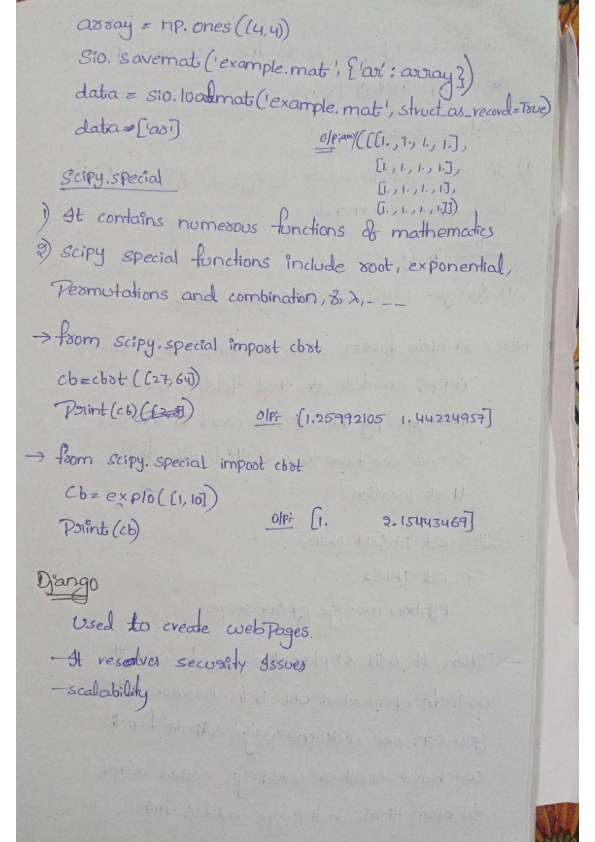 array = np.ones((4,4))
Sio. savemat('example.mat', {'ar': array})
data = Sio.loadmat('example.mat', struct_as_record=True)
data=['ar']
o/p: array([[1., 1., 1., 1.],
[1., 1., 1., 1.],
[1., 1., 1., 1],
[1., 1., 1., 1.]])
Scipy.special
1) It contains numerous functions of mathematics
2) Scipy special functions include root, exponential,
Permutations and combination, &, λ, - - -
→ from scipy.special import cbrt
cb=cbrt([27,64])
Print(cb)
O/P: [1.25992105 1.44224957]
→ from scipy.special impoot cbrt
Cb= exp10([1,10])
Print(cb)
O/P: [1. 2.15443469]
Django
Used to create webPages.
-It resolves security Issues
-scalability